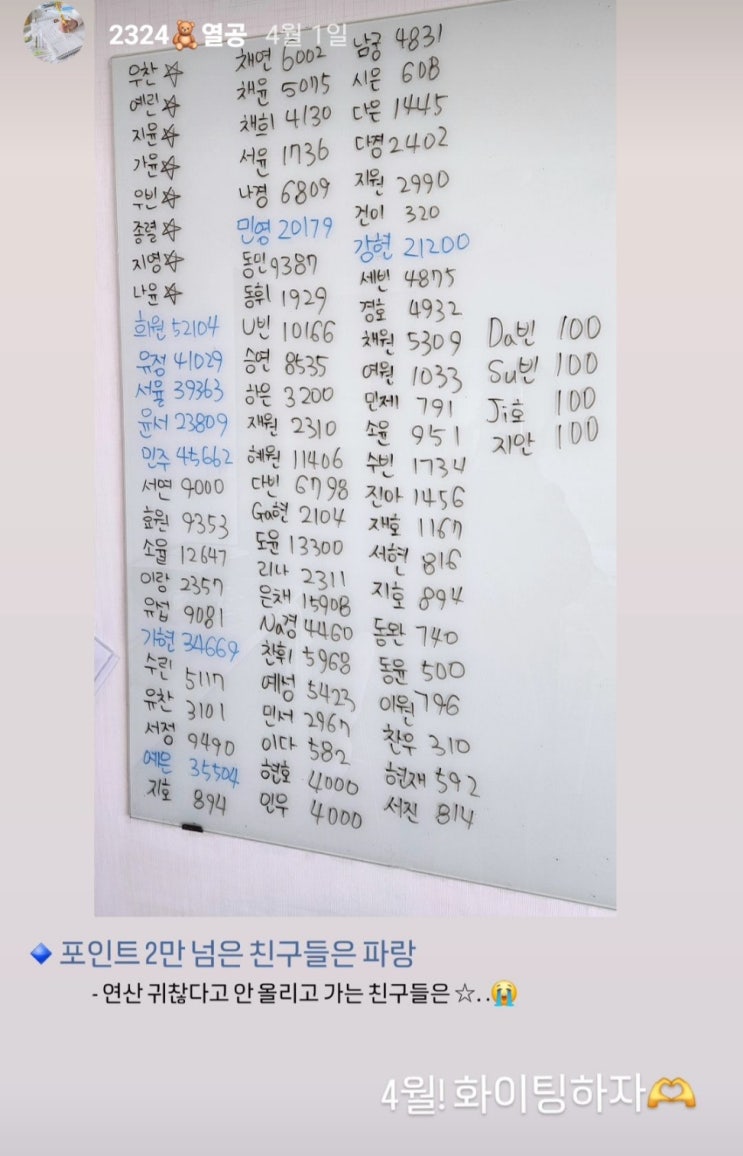 2324🧸열공 4월 1일
우찬 ☆
예린 ☆
지윤 ☆
가윤 ☆
우빈 ☆
종렬 ☆
지영 ☆
나윤 ☆
희원 52104
유정 41029
서율 39363
윤서 23809
민주 45662
서연 9000
효원 9353
소율 12647
이랑 2357
유섭 9081
가현 34669
수린 5117
유찬 3101
서정 9490
예은 35504
지호 894
채연 6002
채윤 5075
채희 4130
서윤 1736
나경 6809
민영 20179
동민 9387
동휘 1929
U빈 10166
승연 8535
하은 3200
재원 2310
혜원 11406
다빈 6798
Ga현 2104
도윤 13300
리나 2311
은채 15908
Na경 4460
찬휘 5968
예성 5423
민서 2967
이다 582
현호 4000
민우 4000
남궁 4831
시은 608
다은 1445
다경 2402
지원 2990
건이 320
강현 21200
세빈 4875
경호 4932
채원 5309
여원 1033
민제 791
소윤 951
수빈 1734
진아 1456
재호 1167
서현 816
지호 894
동완 740
동윤 500
이원 796
찬우 310
현재 592
서진 814
Da빈 100
Su빈 100
Ji호 100
지안 100
🔹포인트 2만 넘은 친구들은 파랑
- 연산 귀찮다고 안 올리고 가는 친구들은 ☆..😭
4월! 화이팅하자🫶